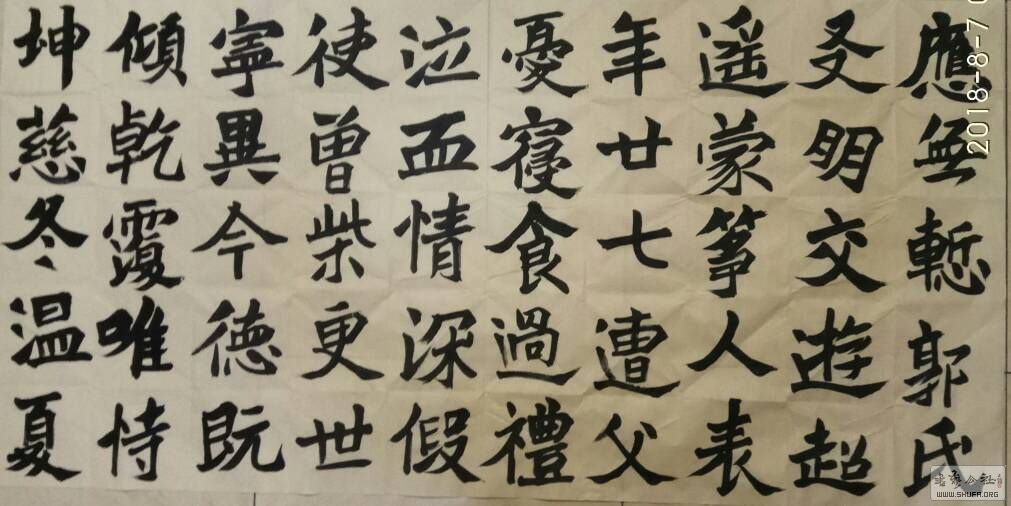 應無慙郭氏
友明交遊超
遥蒙箏人表
年廿七遭父
憂寢食過禮
泣血情深假
使曾柴更世
寧異今德既
傾乾覆唯恃
坤慈冬温夏
2018-8-7
WWW.SHUFA.ORG